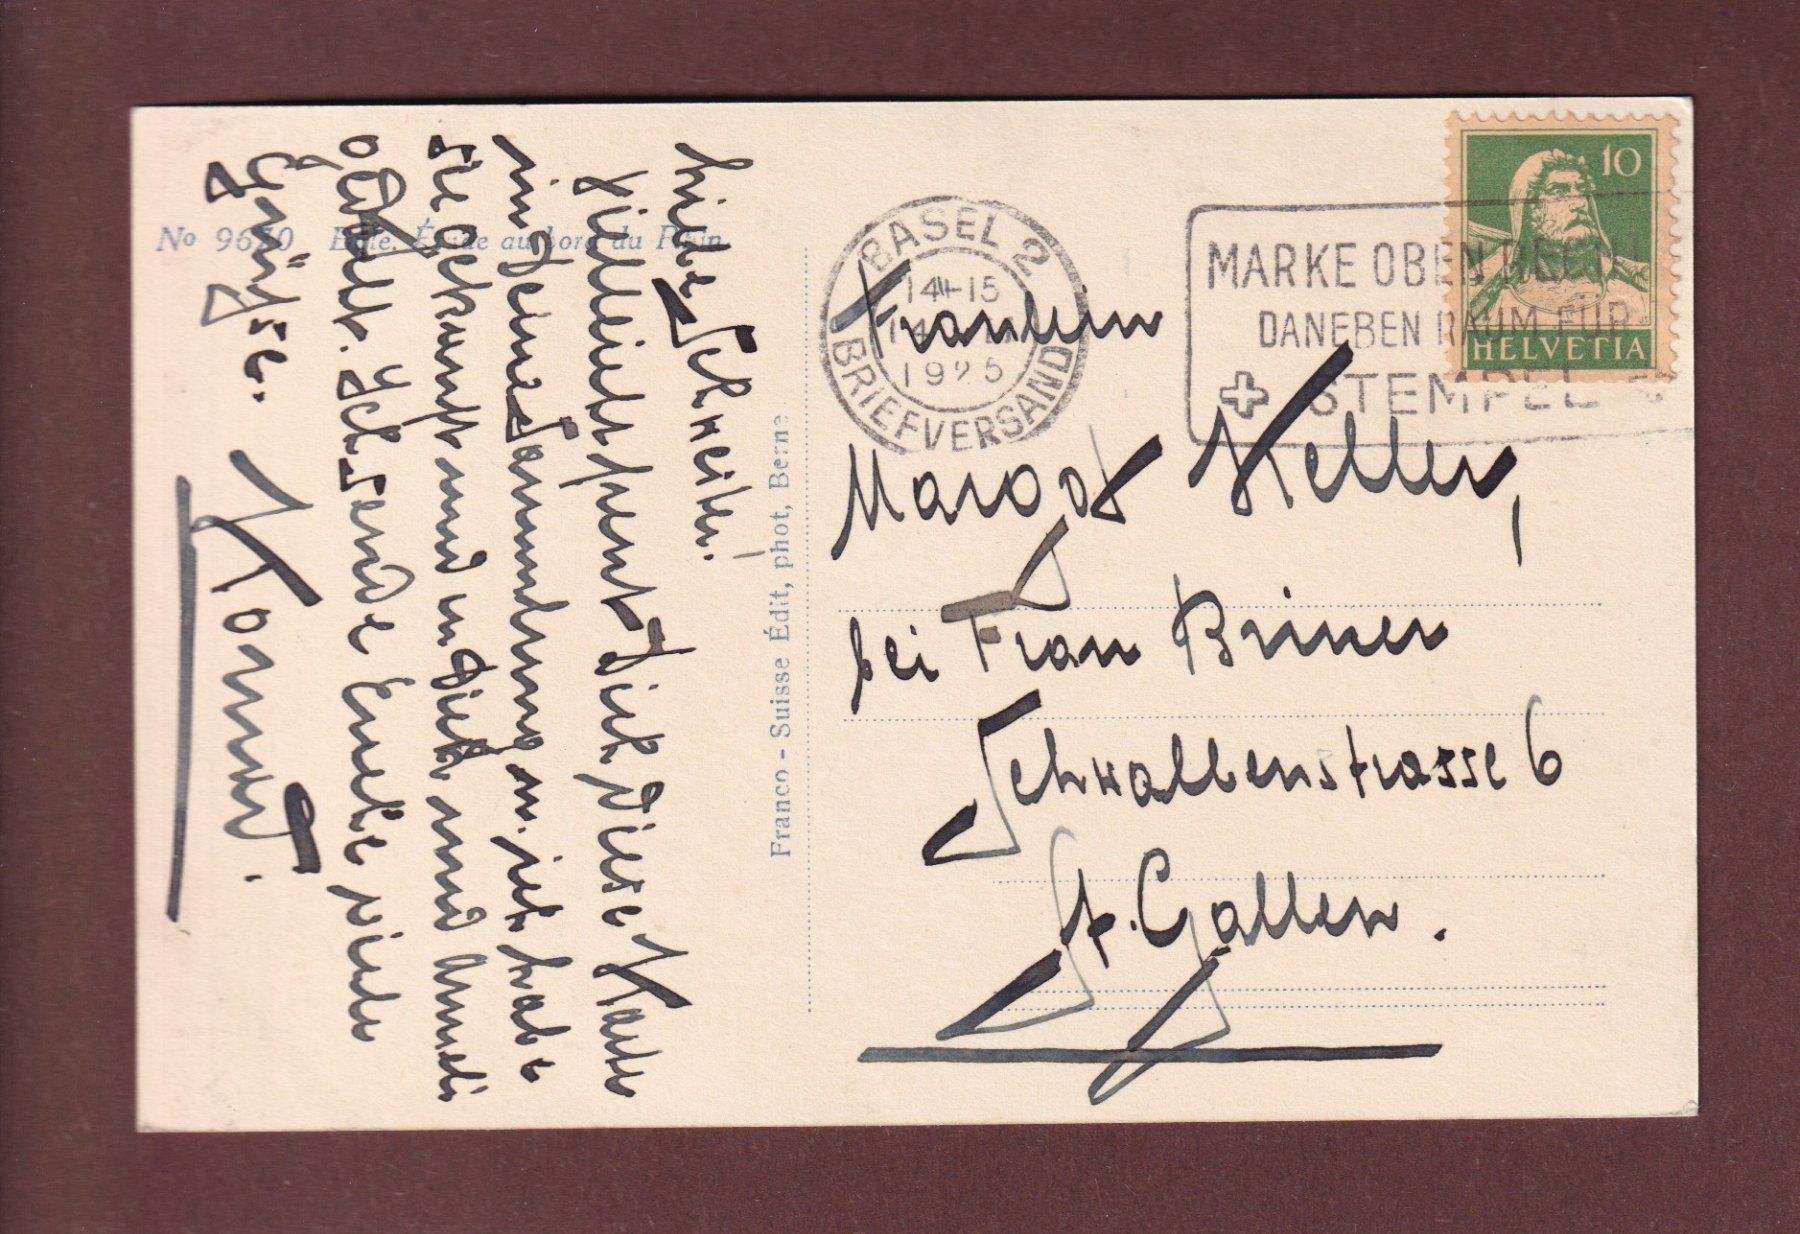 Liebe Schweiher.
Vielleicht freut Dich diese Karte
in Deine Sammlung m. ich habe
sie gekauft und an Dich und Anneli
gedacht. Ich sende Euch viele
Grüsse.
No 9670 Bâle. Étude au bord du Rhin
Franco-Suisse Édit, phot, Berne
BASEL 2
14-15
1925
BRIEFVERSAND
MARKE OBEN RECHTS
DANEBEN RAUM FÜR
STEMPEL
10
HELVETIA
Fräulein
Margot Keller,
bei Frau Briner
Schwalbenstrasse 6
St. Gallen.